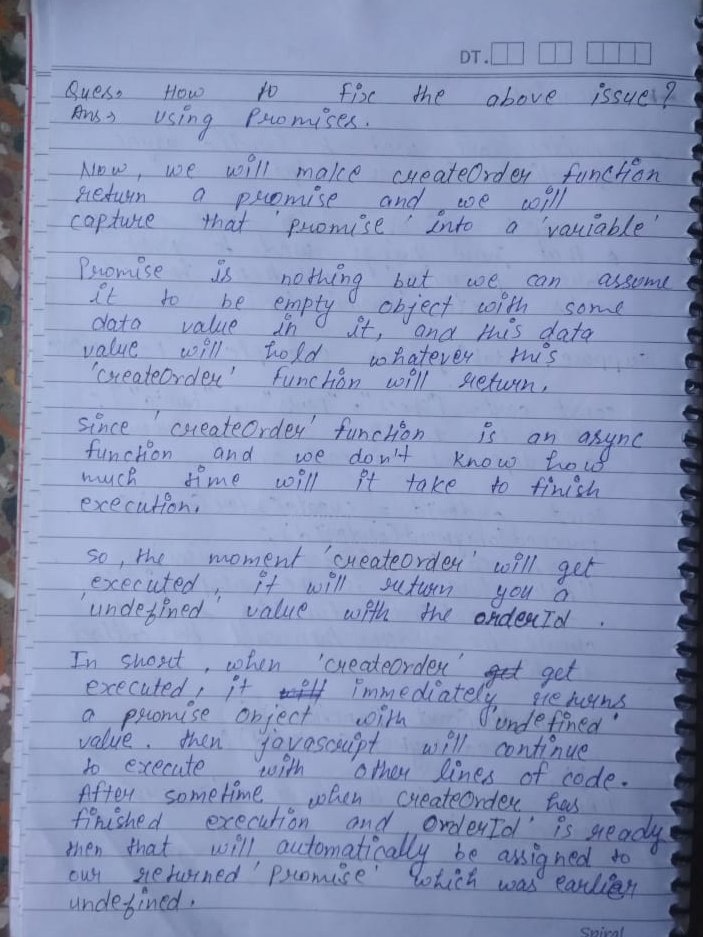 DT.
Ques→ How to fix the above issue?
Ans→ using Promises.
Now, we will make createOrder function
return a promise and we will
capture that 'promise' into a 'variable'
Promise is nothing but we can assume
it to be empty object with some
data value in it, and this data
value will hold whatever this
'createOrder' function will return.
Since 'createOrder' function is an async
function and we don't know how
much time will it take to finish
execution.
So, the moment 'createOrder' will get
executed, it will return you a
'undefined' value with the orderId.
In short, when 'createOrder' get get
executed, it will immediately returns
a promise object with 'undefined'
value. then javascript will continue
to execute with other lines of code.
After sometime when createOrder has
finished execution and orderId' is ready
then that will automatically be assigned to
our returned 'Promise' which was earlier
undefined.
Spiral